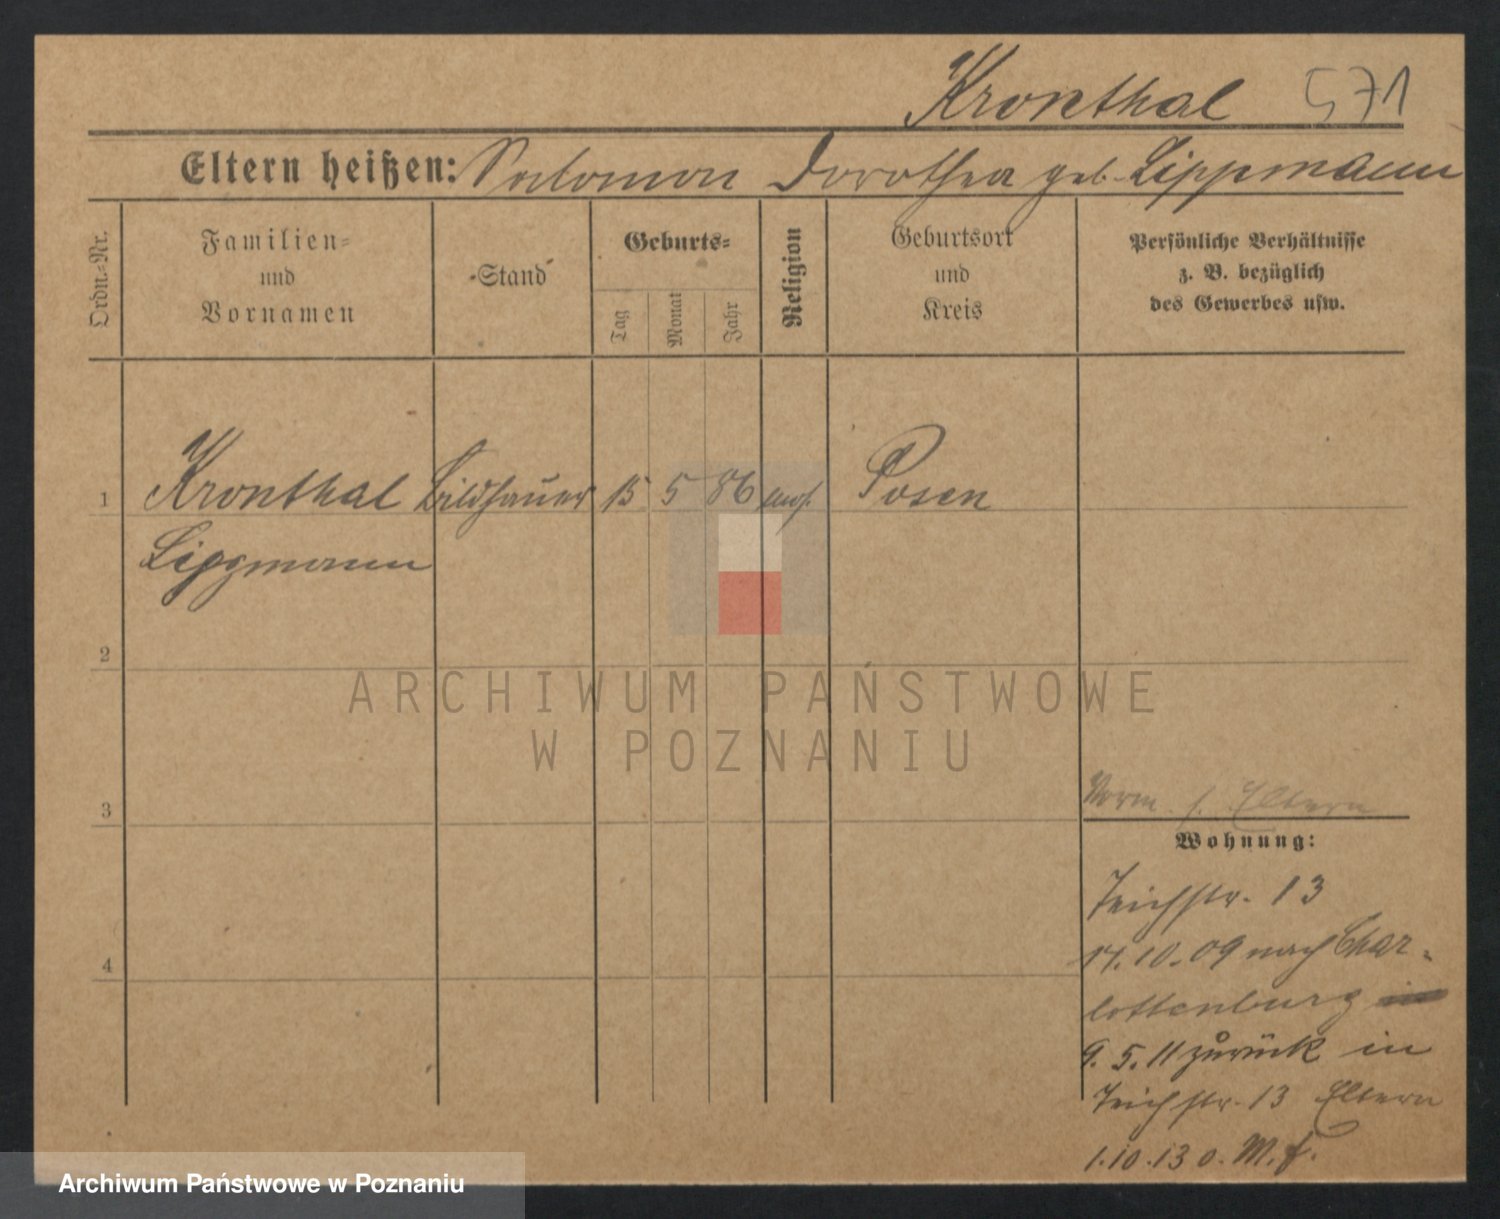 Kronthal 571
Eltern heißen: Salomon Dorothea geb. Lippmann
Ordn.=Nr.
Familien=
und
Vornamen
Stand
Geburts=
Tag
Monat
Jahr
Religion
Geburtsort
und
Kreis
Persönliche Verhältnisse
z. B. bezüglich
des Gewerbes usw.
1 Kronthal Bildhauer 15 5 86 mos. Posen
Lippmann
2
ARCHIWUM PAŃSTWOWE
W POZNANIU
3
Norm. s. Eltern
Wohnung:
Teichstr. 13
4
17.10.09 nach Char-
lottenburg
9.5.11 zurück in
Teichstr. 13 Eltern
1.10.13 o. M. f.
Archiwum Państwowe w Poznaniu